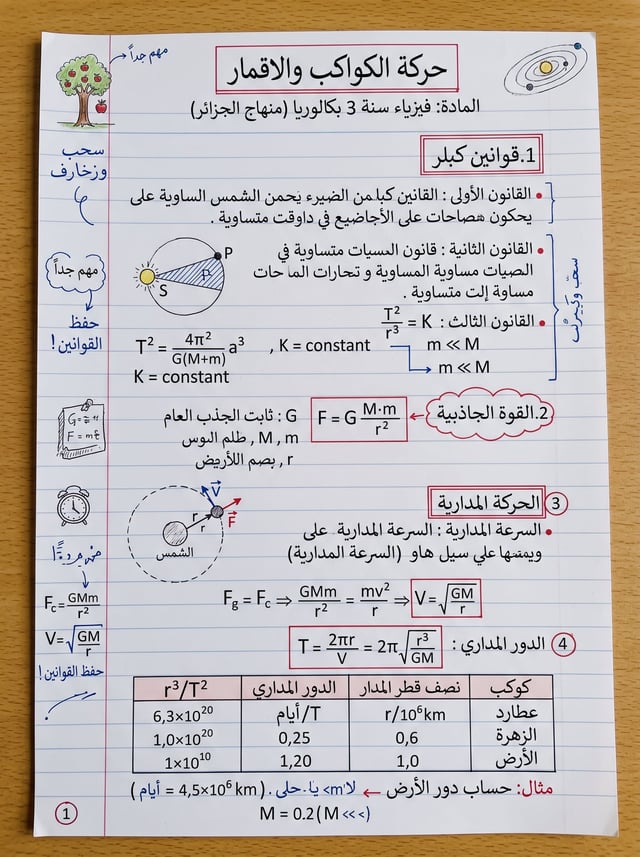 مهم جداً
حركة الكواكب والاقمار
المادة: فيزياء سنة 3 بكالوريا (منهاج الجزائر)
سحب
وزخارف
1.قوانين كبلر
القانون الأولى : القانين كبلمن الضيرء يحمن الشمس الساوية على
يحكون هصاحات على الأجاضيع في داوقت متساوية .
القانون الثانية : قانون المسيات متساوية في
الصيات مساوية المساوية و تحارات الماحات
مساوة إلت متساوية .
P
P
S
مهم جداً
حفظ
القوانين !
القانون الثالث: T²/r³ = K
T² = 4π²/G(M+m) a³ , K = constant
m ≪ M
K = constant
m ≪ M
2.القوة الجاذبية
F = G M·m/r²
G : ثابت الجذب العام
M , m , ظلم الىوس
r , بصم اللأريض
3 الحركة المدارية
السرعة المدارية : السرعة المدارية على
ويمتها علي سيل هاو (السرعة المدارية)
V
F
r
r
الشمس
Fg = Fc ⇒ GMm/r² = mv²/r ⇒ V = √GM/r
Fc = GMm/r²
V = √GM/r
حفظ القوانين !
4 الدور المداري : T = 2πr/V = 2π√r³/GM
كوكب نصف قطر المدار الدور المداري r³/T²
عطارد r/10⁶km T/أيام 6,3×10²⁰
الزهرة 0,6 0,25 1,0×10²⁰
الأرض 1,0 1,20 1×10¹⁰
مثال: حساب دور الأرض ← (أيام = 4,5×10⁶ km)
M = 0.2(M <<<)
1